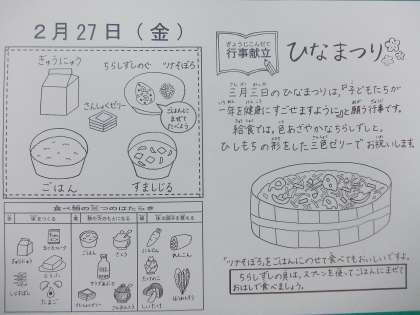 2月27日(金)
ぎゅうにゅう
ちらしずしのぐ
ツナそぼろ
ごはんに
まぜて
たべよう
さんしょくゼリー
ごはん
すましじる
食べ物の三つのはたらき
ぎゅうにゅう
とうふ
たまご
ごはん
さとう
さんしょくゼリー
にんじん
れんこん
しいたけ
ほうれんそう
ぎょうじこんだて
行事献立
ひなまつり
三月三日のひなまつりは、『子どもたちが
一年を健康にすごせますように』と願う行事です。
給食では、色あざやかなちらしずしと、
ひしもちの形をした三色ゼリーでお祝いします。
"ツナそぼろ"をごはんにのせて食べてもおいしいですよ。
ちらしずしの具は、スプーンを使ってごはんにまぜて
おはしで食べましょう。